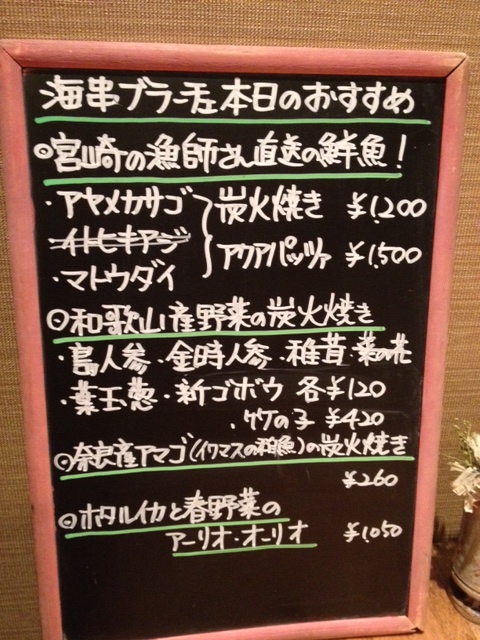 海串ブラーチェ本日のおすすめ
◎宮崎の漁師さん直送の鮮魚!
・アヤメカサゴ 炭火焼き ¥1,200
イトヒキアジ アクアパッツァ ¥1,500
・マトウダイ
◎和歌山産野菜の炭火焼き
・島人参・金時人参・椎茸・菜の花
・葉玉葱・新ゴボウ 各¥120
・タケの子 ¥420
◎奈良産アマゴ(イワマスの稚魚)の炭火焼き
¥260
◎ホタルイカと春野菜の
アーリオ・オーリオ ¥1,050